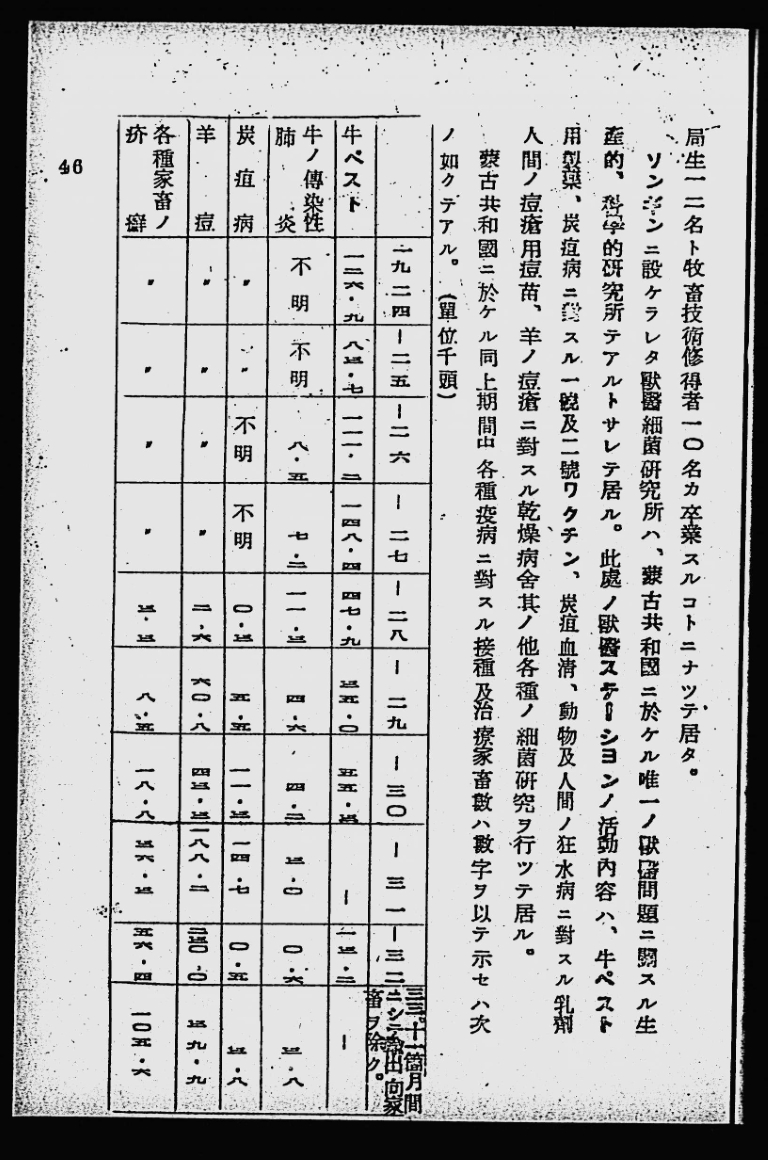 局生一二名ト牧畜技術修得者一〇名カ卒業スルコトニナツテ居タ。
ソンギンニ設ケラレタ獸醫細菌研究所ハ、蒙古共和國ニ於ケル唯一ノ獸醫問題ニ關スル生
產的、科學的研究所テアルトサレテ居ル。此處ノ獸醫ステーシヨンノ活動內容ハ、牛ペスト
用製藥、炭疽病ニ對スル一號及二號ワクチン、炭疽血清、動物及人間ノ狂水病ニ對スル乳劑
人間ノ痘瘡用痘苗、羊ノ痘瘡ニ對スル乾燥病舍其ノ他各種ノ細菌研究ヲ行ツテ居ル。
蒙古共和國ニ於ケル同上期間中各種疫病ニ對スル接種及治療家畜數ハ數字ヲ以テ示セハ次
ノ如クテアル。(單位千頭)
一九二四 ー二五 ー二六 ー二七 ー二八 ー二九 ー三〇 ー三一 ー三二 三三。十一箇月間ニシテ輸出向家畜ヲ除ク。
牛ペスト 一二六・九 八三・七 一一一・二 一四八・四 四七・九 三五・〇 五五・三 ー 一三・二 ー
牛ノ傳染性肺炎 不明 不明 八・五 七・二 一一・三 四・六 四・二 三・〇 〇・六 三・八
炭疽病 〃 〃 不明 不明 〇・三 五・五 一一・三 一四・七 〇・五 三・八
羊痘 〃 〃 〃 〃 二・六 六〇・八 四三・三 一八八・二 二三〇・〇 三九・九
各種家畜ノ疥癬 〃 〃 〃 〃 三・三 八・五 一八・八 三六・三 五六・四 一〇五・六
46